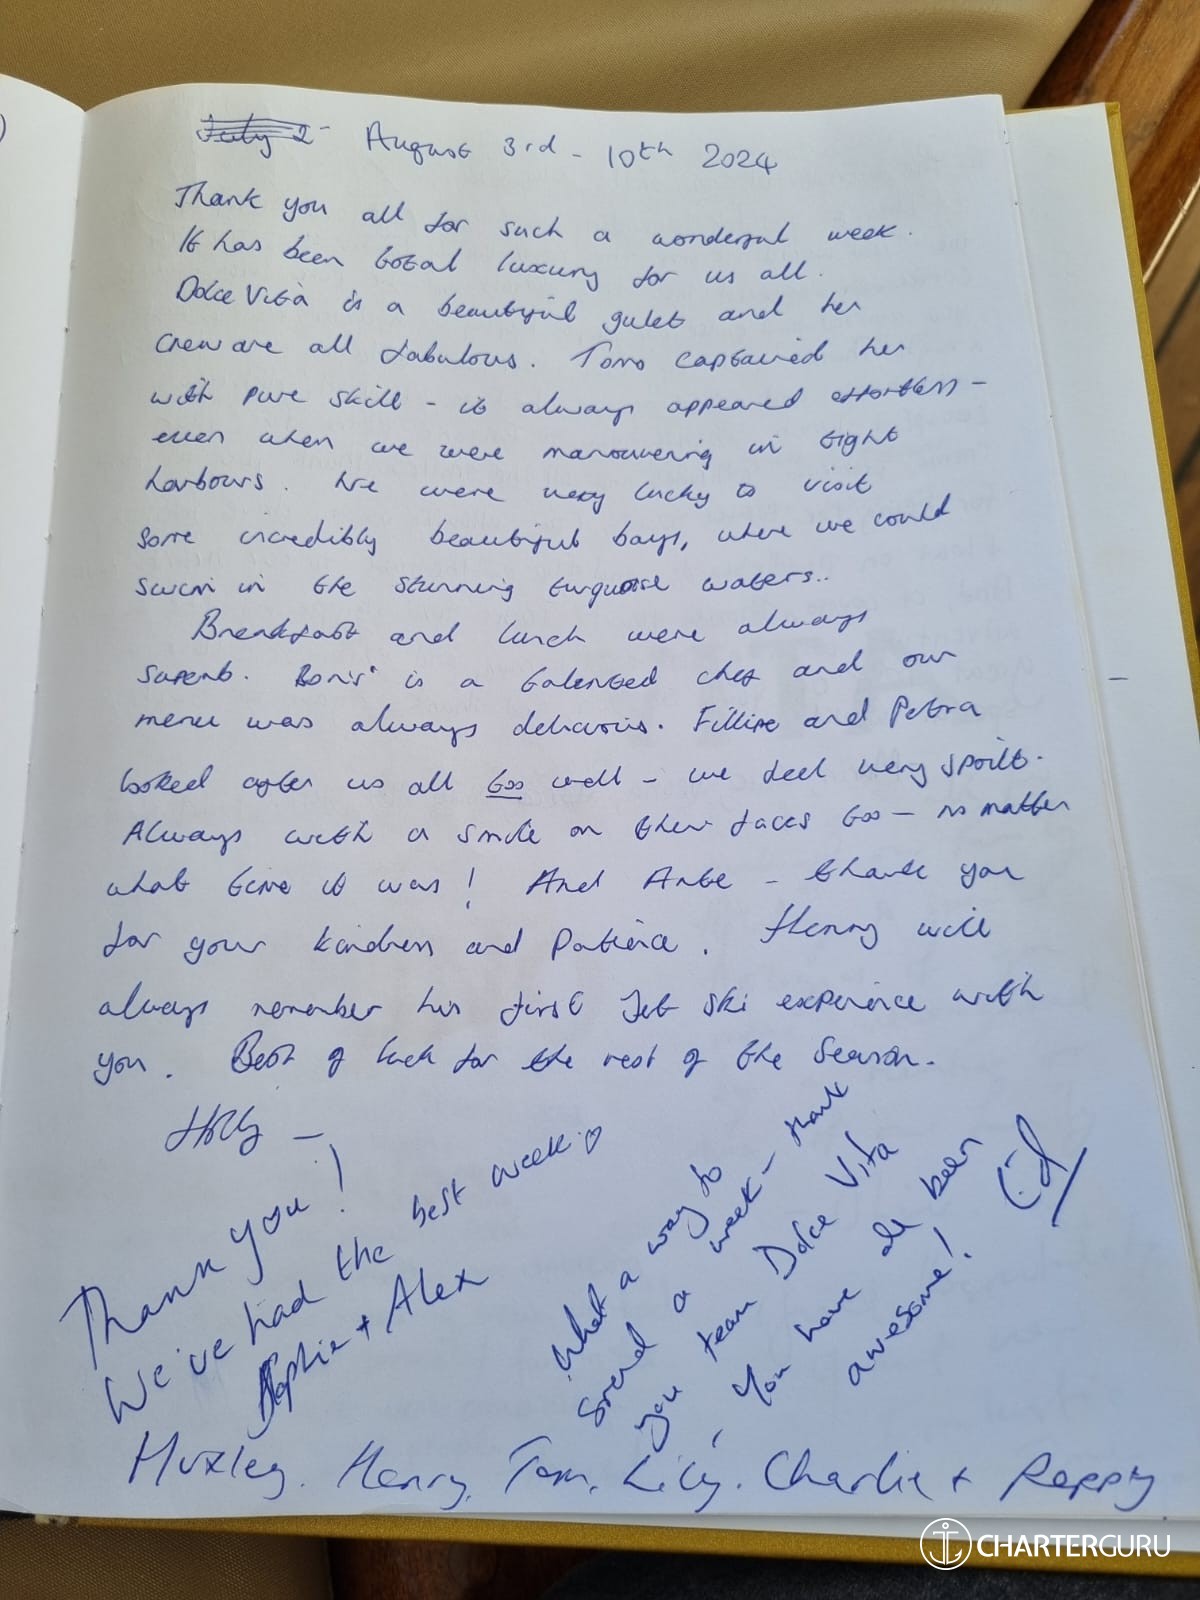 July 2- August 3rd - 10th 2024
Thank you all for such a wonderful week.
It has been total luxury for us all.
Dolce Vita is a beautiful gulet and her
crew are all fabulous. Tomo captained her
with pure skill - it always appeared effortless -
even when we were manouvering in tight
harbours. We were very lucky to visit
some incredibly beautiful bays, where we could
swim in the stunning turquoise waters..
Breakfast and lunch were always
superb. Boris is a talented chef and our
menu was always delicious. Fillipe and Petra
looked after us all too well - we feel very spoilt.
Always with a smile on their faces too - no matter
what time it was! And Ante - thank you
for your kindness and patience. Henry will
always remember his first Jet Ski experience with
you. Best of luck for the rest of the season.
Holly -
Thank you!
We've had the best week
Sophie + Alex
What a way to
spend a week - thank
you team Dolce Vita
, You have all been
awesome!
Huxley. Henry, Tom, Lily. Charlie + Poppy
CHARTERGURU